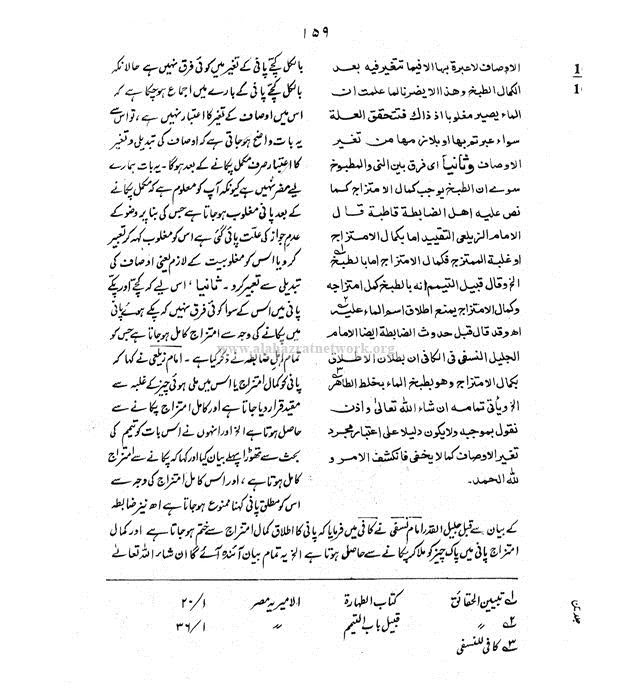 ۱۵۹
الاوصاف لا عبرة بها الا فيما تتغير فيه بعد
الكمال الطبخ وهذا لا يضرنا لما علمت ان
الماء يصير مغلوبا اذ ذاك فتتحقق العلة
سواء عبرتم بها او بلازمها من تغير
الاوصاف وثانيا اى فرق بين النى والمطبوخ
سوى ان الطبخ يوجب كمال الامتزاج كما
نص عليه اهل الضابطة قاطبة قال
الامام الزيلعى التقييد اما بكمال الامتزاج
او غلبة الممتزج فكمال الامتزاج اما بالطبخ
الخ وقال قبيل التيمم انه بالطبخ كمل امتزاجه
وكمال الامتزاج يمنع اطلاق اسم الماء عليه
اھ وقد قال قبل حدوث الضابطة ايضا الامام
الجليل النسفى فى الكافى ان بطلان الاطلاق
بكمال الامتزاج وهو بطبخ الماء بخلط الطاهر
الخ وياتى تمامه ان شاء الله تعالى واذن
نقول بموجبه ولا يكون دليلا على اعتبار مجرد
تغير الاوصاف كما لا يخفى فانكشف الامر و
لله الحمد۔
بالکل کچے پانی کے تغیر میں کوئی فرق نہیں ہے حالانکہ
بالکل کچے پانی کے بارے میں اجماع ہوچکا ہے کہ
اس میں اوصاف کے تغیر کا اعتبار نہیں ہے ، تو اس سے
یہ بات واضح ہوجاتی ہے کہ اوصاف کی تبدیلی و تغیر
کا اعتبار صرف مکمل پکانے کے بعد ہوگا۔ یہ بات ہمارے
لیے مضر نہیں ہے کیونکہ آپ کو معلوم ہے کہ مکمل پکانے
کے بعد پانی مغلوب ہوجاتا ہے جس کی بنا پر وضو کے
عدمِ جواز کی علت پائی گئی ہے اس کو مغلوب کہہ کر تعبیر
کردیا اس کو مغلوبیت کے لازم یعنی اوصاف کی
تبدیلی سے تعبیر کردو۔ ثانیا ، اس لیے کہ کچے اور پکے
پانی میں اس کے سوا کوئی فرق نہیں کہ پکے ہوئے پانی
میں پکانے کی وجہ سے امتزاج کامل ہوجاتا ہے جس کو
تمام اہلِ ضابطہ نے ذکر کیا ہے۔ امام زیلعی نے کہا کہ
پانی کو کمالِ امتزاج یا اس میں ملی ہوئی چیز کے غلبہ سے
مقید قرار دیا جاتا ہے اور کامل امتزاج پکانے سے
حاصل ہوتا ہے الخ اور انہوں نے اس بات کو تیمم کی
بحث سے تھوڑا پہلے بیان کیا اور کہا کہ پکانے سے امتزاج
کامل ہوتا ہے ، اور اس کامل امتزاج کی وجہ سے
اس کو مطلق پانی کہنا ممنوع ہوجاتا ہے اھ نیز ضابطہ
www.alahazratnetwork.org
کے بیان سے قبل جلیل القدر امام نسفی نے کافی میں فرمایا کہ پانی کا اطلاق کمال امتزاج سے ختم ہوجاتا ہے اور کمال
امتزاج پانی میں پاک چیز کو ملا کر پکانے سے حاصل ہوتا ہے الخ یہ تمام بیان آئندہ آئے گا ان شاء اللہ تعالٰے
۱؎ تبیین الحقائق کتاب الطہارۃ الامیریہ مصر ۱/ ۲۰
۲؎ " قبیل باب التیمم " ۱/ ۳۶
۳؎ کافی للنسفی